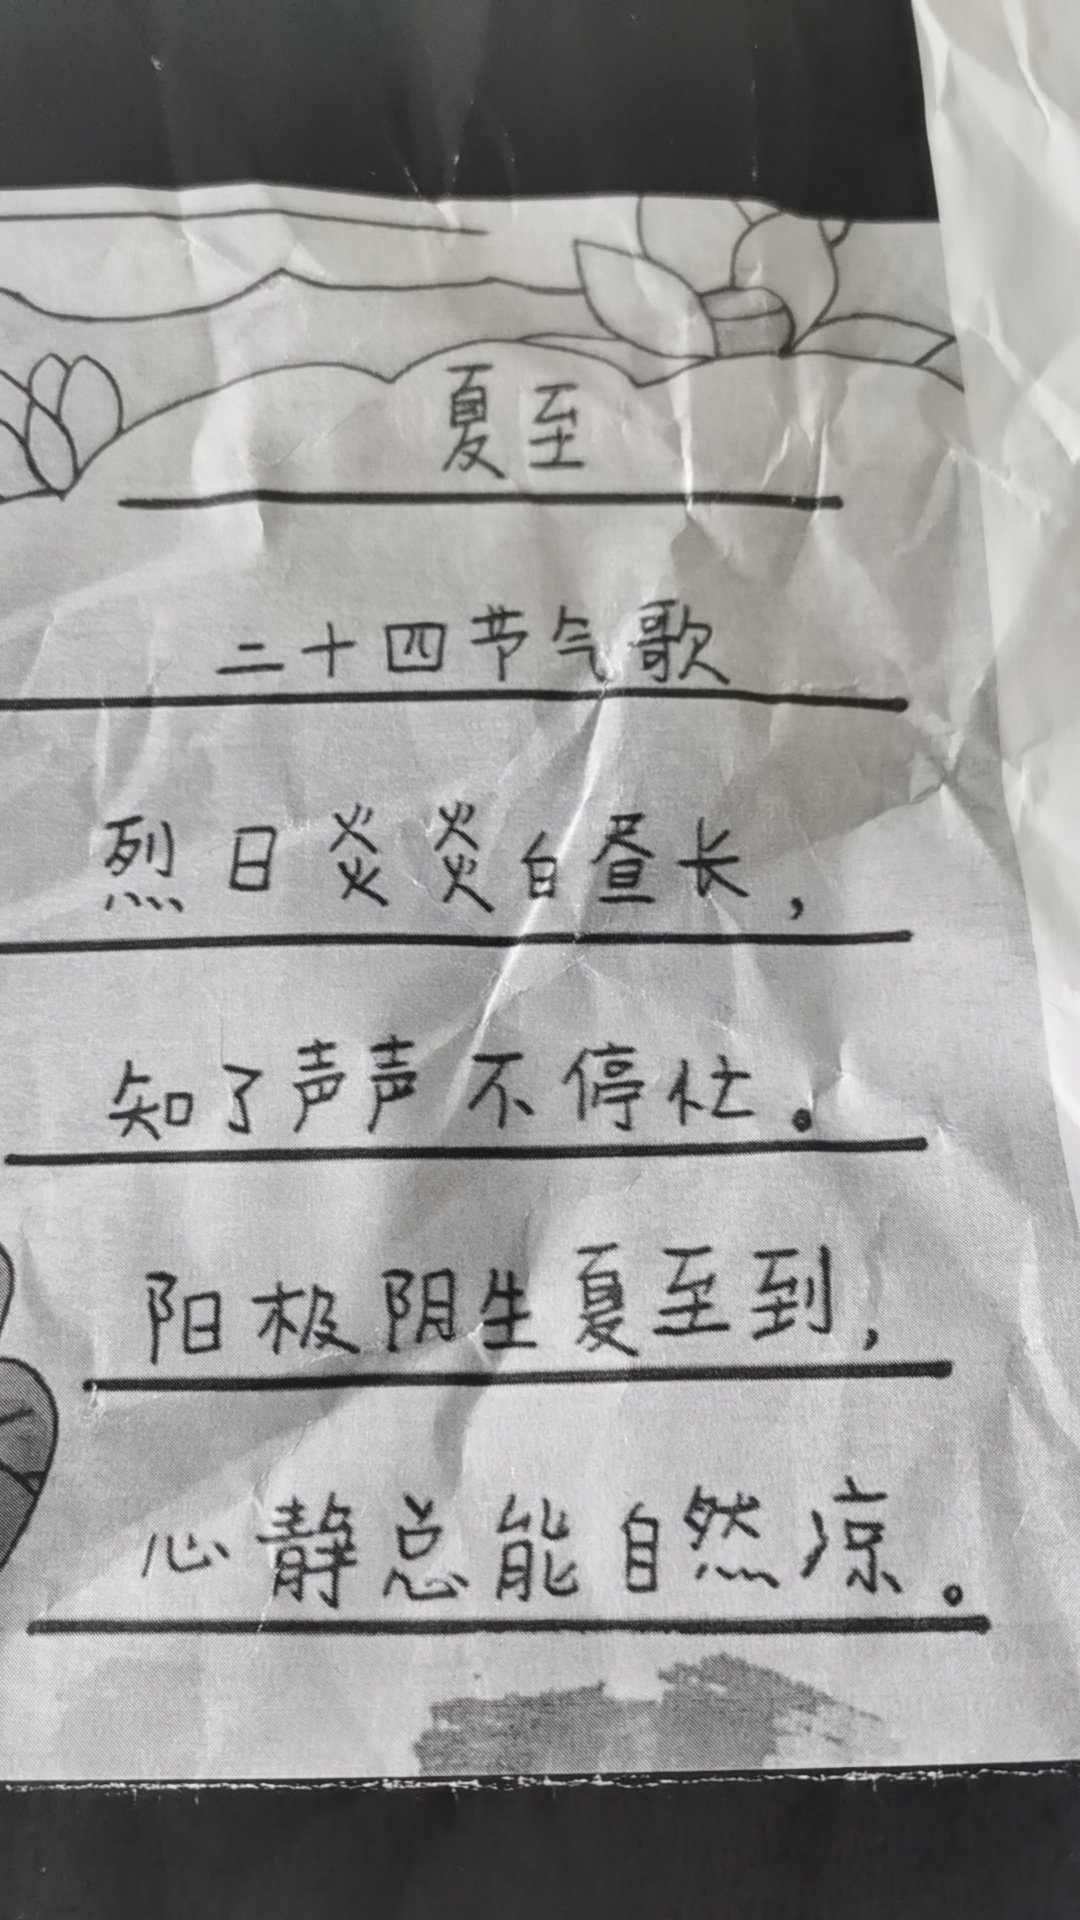 夏至
二十四节气歌
烈日炎炎白昼长，
知了声声不停忙。
阳极阴生夏至到，
心静总能自然凉。